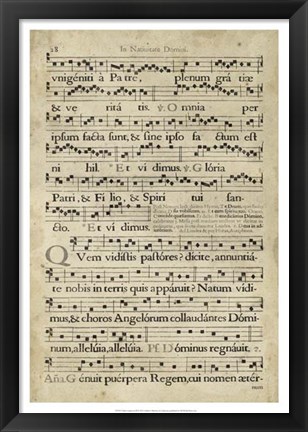 28 In Nativitate Domini.
vnigéniti à Patre, plenum grátiæ
& ve ritá tis. ℣. Omnia per
ipsum facta sunt, & sine ipso fa ctum est
ni hil. *Et vidimus. ℣. Glória
Patri, & Filio, & Spirí tui san-
cto. *Et vidimus.
QVem vidístis pastóres? dícite, annuntiá-
te nobis in terris quis appáruit? Natum vidi-
mus, & choros Angelórum collaudántes Dómi-
num, allelúia, allelúia. Ps. Dóminus regnáuit.
Aña. Génuit puérpera Regem, cui nomen ætér-